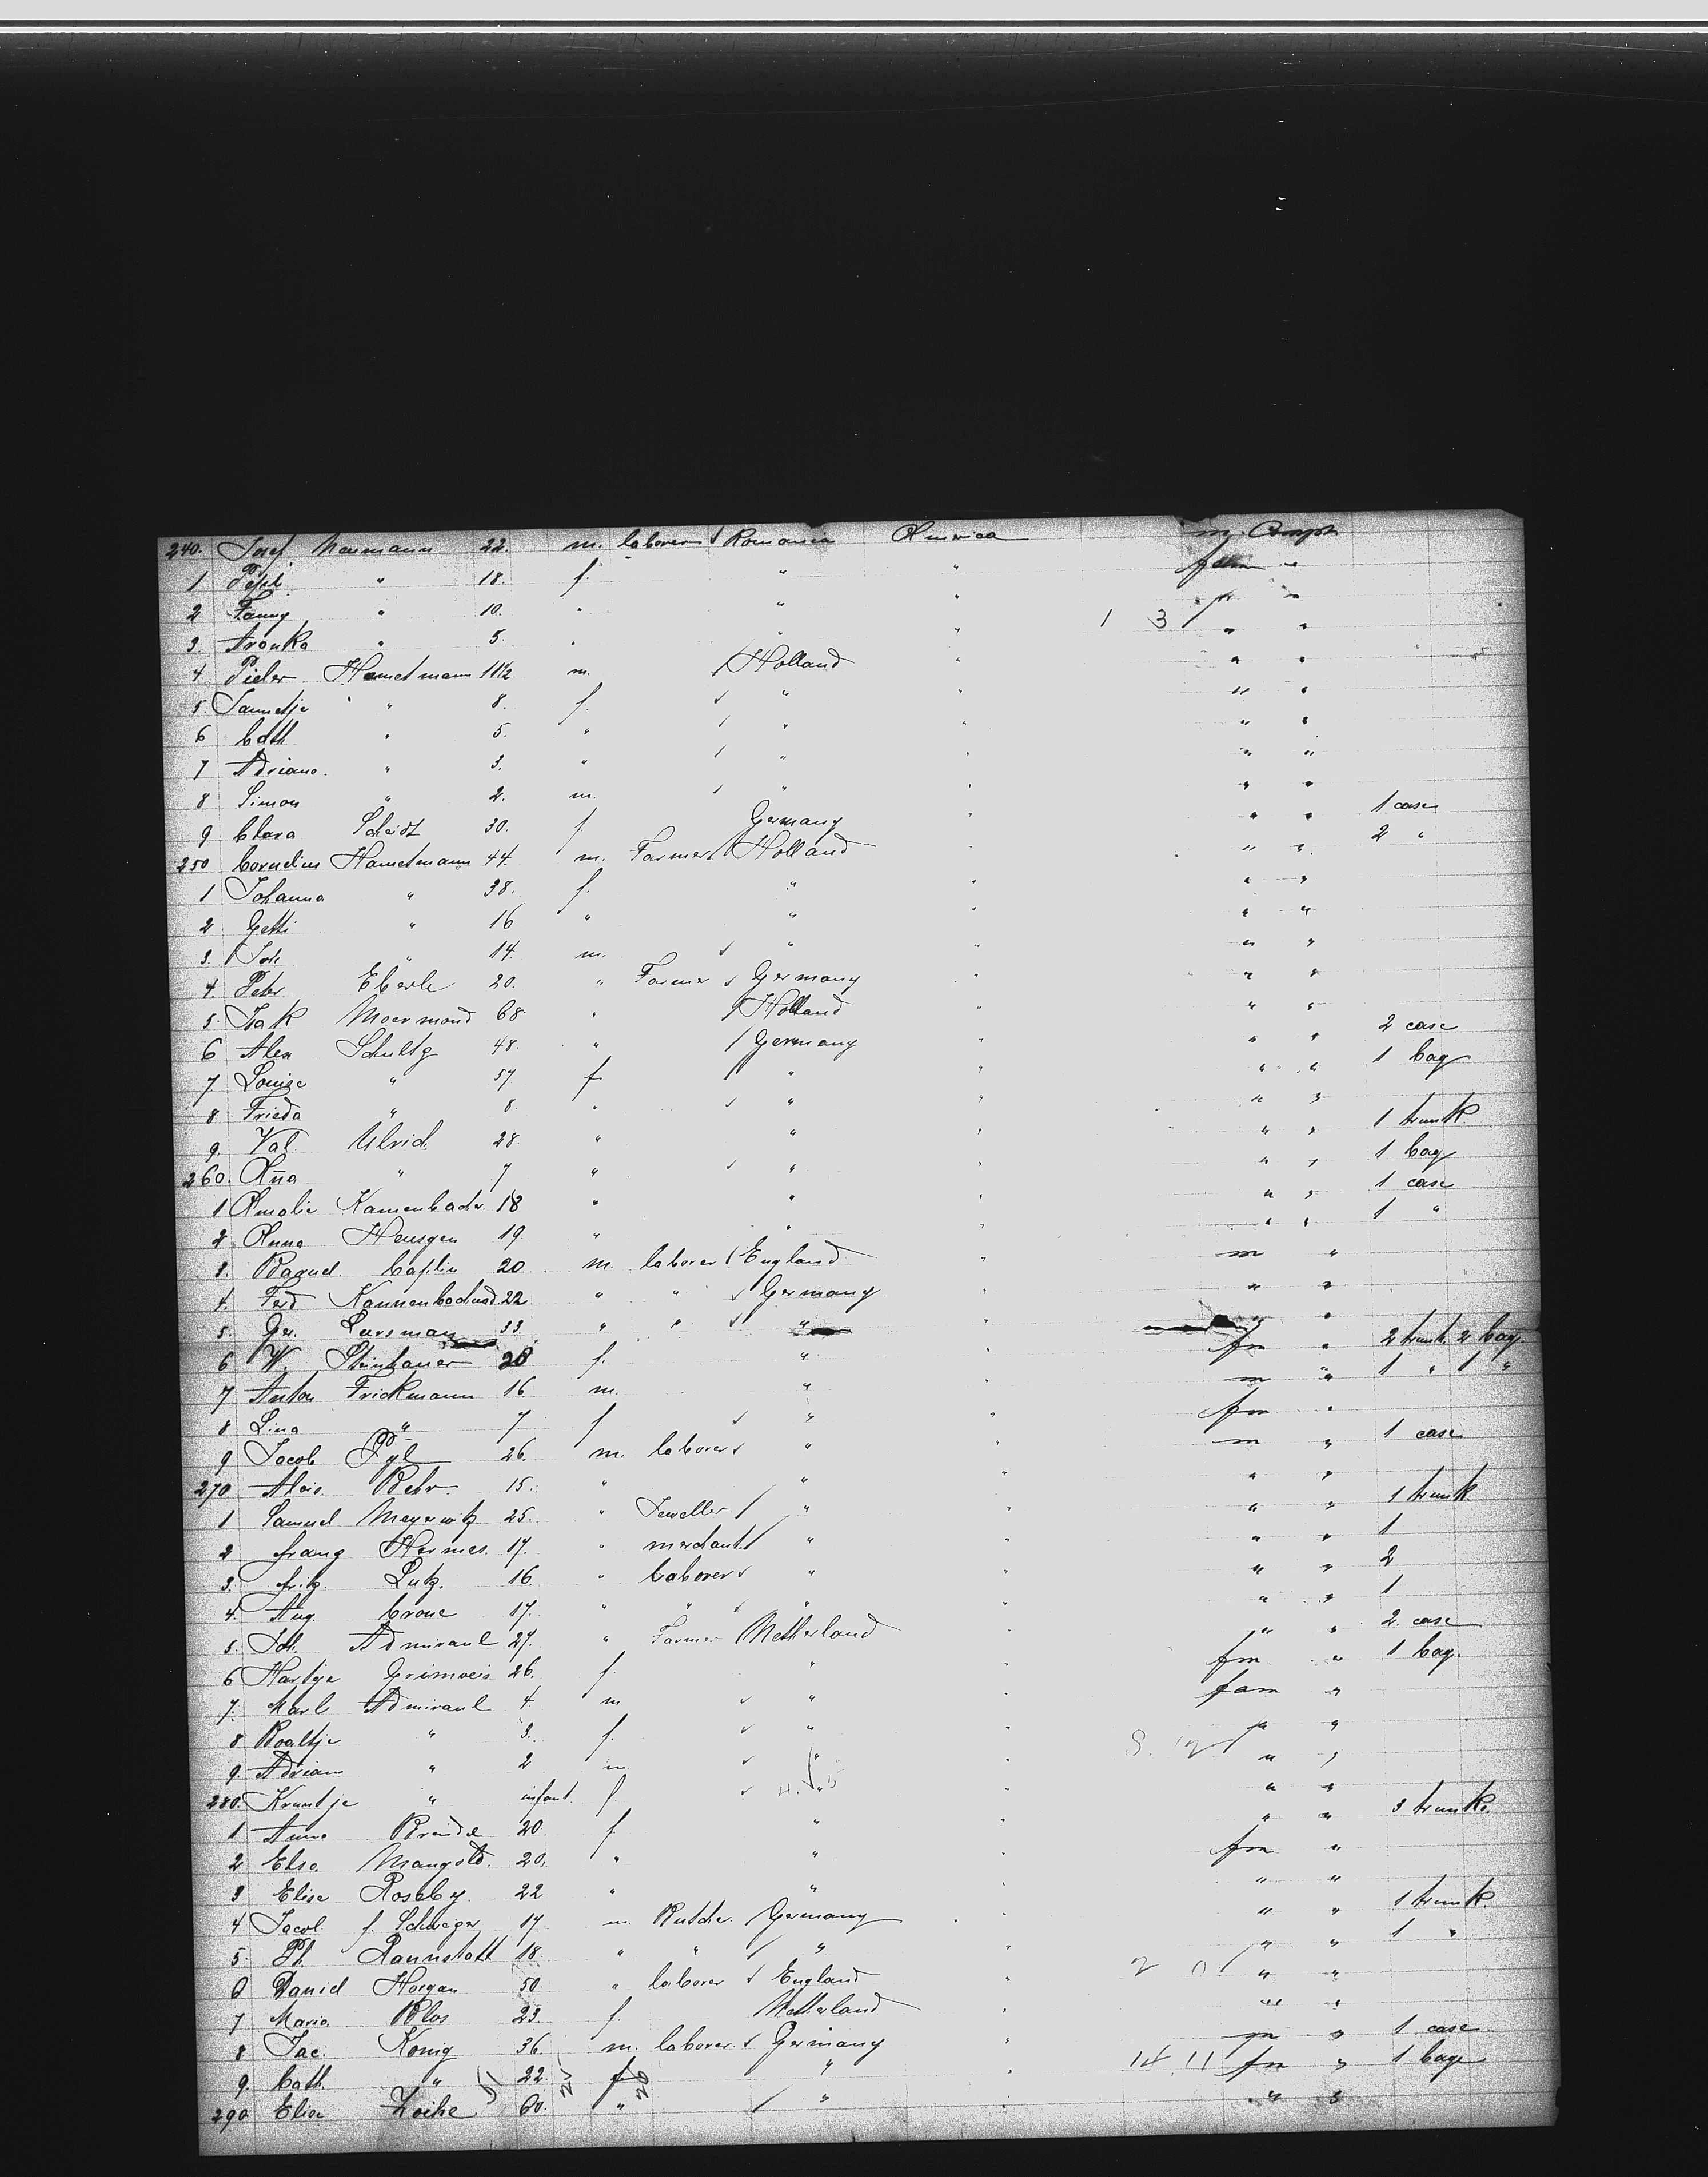 240. Josef Neumann 22. m. laborer Romania America m. Comph
1 " 18. f. " " fam "
2 Fanny " 10. " " " " "
3. Aronka " 5. " " " 1 3 " "
4. Pieter Hametmann 11 1/2 m. Holland " " "
5. Jannetje " 8. f. " " " "
6 Cath " 5. " " " " "
7 Adriana. " 3. " " " " "
8 Simon " 2. m. " " " "
9 Clara Scheidt 30. f Germany " " " 1 case
250 Cornelius Hametmann 44. m. Farmer Holland " " " 2 "
1 Johanna " 38. f. " " " "
2 Getti " 16 " " " " "
3. Joh " 14. m. " " " "
4. Peter Eberle 20. " Farmer Germany " " "
5. Isak Moermond 68 " Holland " " "
6 Alex Schultz 48. " Germany " " " 2 case
7. Louise " 57 f " " " " 1 bag
8. Frieda " 8. " " " " "
9. Val. Ulrich 28 " " " " " 1 trunk.
260. Aña " 7 " " " " " 1 bag
1 Amalie 18 " " " " " 1 case
2 Anna Heusgen 19 " " " " " 1 "
3. Caplin 20 m. laborer England " m "
4. Ferd 22 " " Germany " " "
5. Larsman 33. " " " " "
6 W. Steinhauer 28 f. " " fm " 2 trunk. 2 bag.
7 Anton Frickmann 16 m. " " m " 1 " 1 "
8 Lina " 7 f " " fm "
9 Jacob Pyl 26. m. laborer " " m " 1 case
270 Alois Behr 15. " " " " "
1 Samuel Meyerwitz 25. " Jeweller " " " " 1 trunk
2 Franz Hermes. 17. " merchant " " " " 1
3. Fritz Lutz. 16. " laborer " " " " 2
4. Aug. Crone 17. " " " " " 1
5. Joh. Admiraul 27. " Farmer Netherland " " " 2 case
6 Hartije 26. f. " " fm " 1 bag.
7. Marl Admiraul 4. m " " fam "
8 Roaltje " 3. f. " " " "
9. Adrian " 2 m " " " "
280. Kruntje " infant. f. " " " "
1 Anna Brendel 20 f " " " " 3 trunks.
2 Elsa. Mangold. 20. " " " fm "
3 Elise Roseby 22 " " " "
4 Jacob f. Schweger 17 m. Butcher Germany " " " 1 trunk.
5. Pl. Rannstatt 18. " " " " " " 1 "
6 Daniel Horgan 50 " laborer England " 2 0 " "
7 Maria Blos 23. f. Netterland " " "
8 Jac. Konig 36 m. laborer Germany " m " 1 case
9. Cath. " 22. f " 14 11 fm " 1 bag
290 Elise Zoihe 60. " " " " "